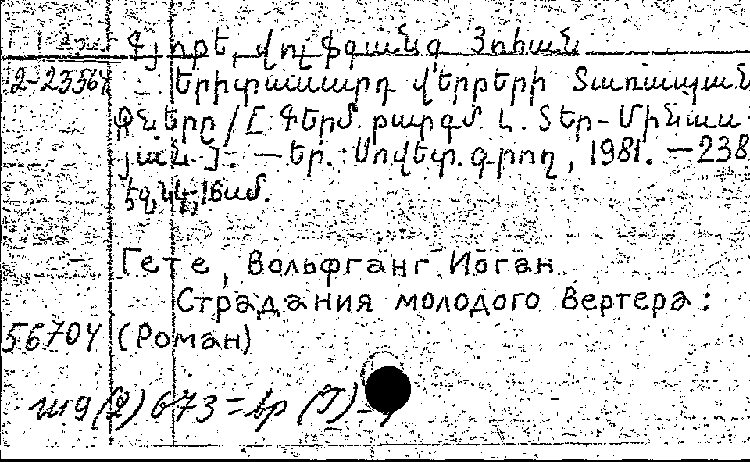 Գյոթե, Վոլֆգանգ Յոհան
2-23567 Երիտասարդ Վերթերի Տառապան-
քները / [ Գերմ. թարգմ. Ն. Տեր-Մինաս-
յան ]. — Եր. : Սովետ. գրող, 1981. — 238
էջ, նկ, 16սմ.
Гете, Вольфганг Иоган
Страдания молодого Вертера:
56704 (Роман)